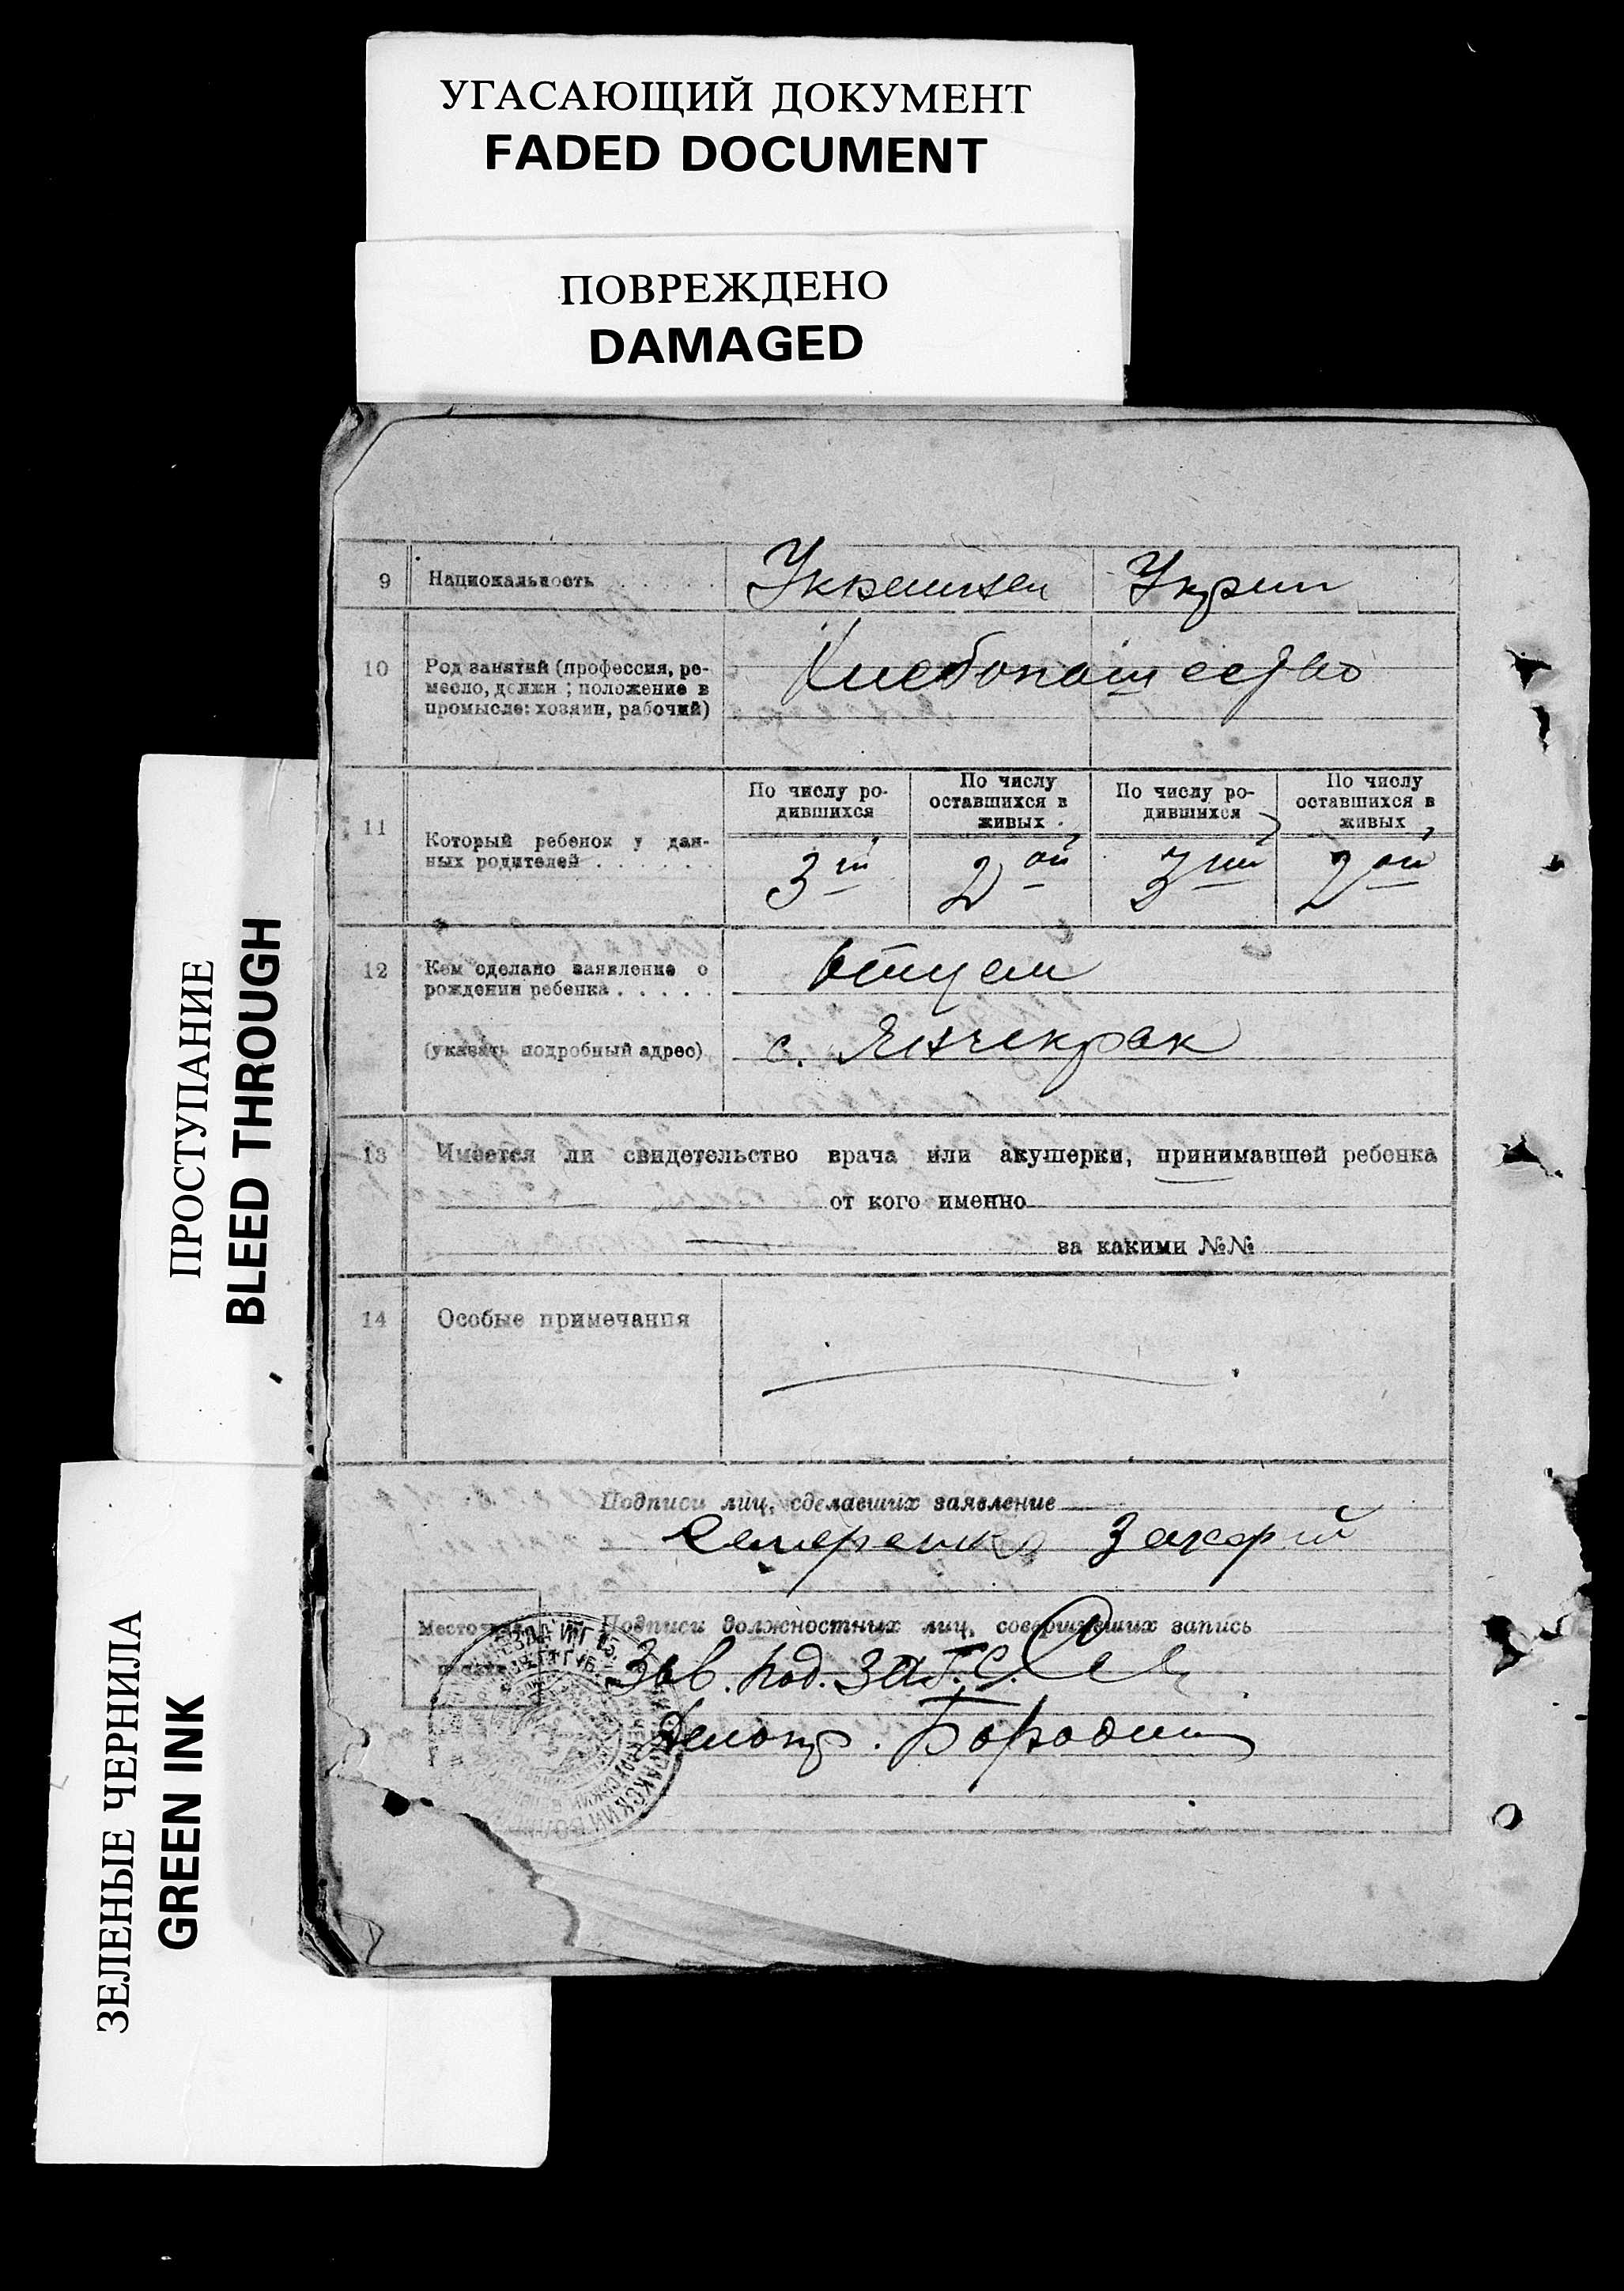 УГАСАЮЩИЙ ДОКУМЕНТ
FADED DOCUMENT
ПОВРЕЖДЕНО
DAMAGED
ПРОСТУПАНИЕ
BLEED THROUGH
ЗЕЛЕНЫЕ ЧЕРНИЛА
GREEN INK
9 Национальность . . . . . . Украинец Украин
10 Род занятий (профессия, ре-
месло, должн; положение в
промысле: хозяин, рабочий)
Хлебопашество
По числу ро-
дившихся
По числу
оставшихся в
живых
По числу ро-
дившихся
По числу
оставшихся в
живых
11 Который ребенок у дан-
ных родителей . . . . . .
3ий 2ой 3ий 2ой
12 Кем сделано заявление о
рождении ребенка . . . . .
Отцем
(указать подробный адрес) с. Янчекрак
13 Имеется ли свидетельство врача или акушерки, принимавшей ребенка
от кого именно
за какими №№
14 Особые примечания
Подписи лиц, сделавших заявление
Захарій
Место
печати
Подписи должностных лиц, совершивших запись
Зав. под. ЗАГС
Делопр. Бородин